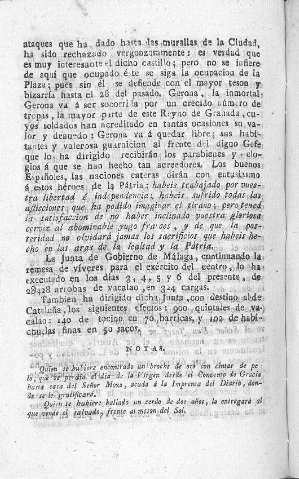 ataques que ha dado hasta las murallas de la Ciudad,
ha sido rechazado vergonzosamente: es verdad que
es muy interesante el dicho castillo; pero no se infiere
de aquí que ocupado éste se siga la ocupacion de la
Plaza; pues sin él se defiende con el mayor teson y
bizarría hasta el 28 del pasado. Gerona, la inmortal
Gerona va á ser socorrida por un crecido número de
tropas, la mayor parte de este Reyno de Granada, cu-
yos soldados han acreditado en tantas ocasiones su va-
lor y denuedo: Gerona va á quedar libre; sus habi-
tantes y valerosa guarnicion al frente del digno Gefe
que lo ha dirigido recibirán los parabienes y elo-
gios á que se han hecho tan acreedores. Los buenos
Españoles, las naciones enteras dirán con entusiasmo
á estos héroes de la Pátria: habeis trabajado por nues-
tra libertad é independencia; habeis sufrido todas las
aflicciones que ha podido imaginar el tirano; pero tened
la satisfaccion de no haber inclinado vuestra gloriosa
cerviz al abominable yugo frances, y de que la pos-
teridad no olvidará jamás los sacrificios que habeis he-
cho en las aras de la lealtad y la Pátria.
La Junta de Gobierno de Málaga, continuando la
remesa de víveres para el exército del centro, lo ha
executado en los dias 3, 4, 5 y 6 del presente, de
28428 arrobas de vacalao, en 324 cargas.
Tambien ha dirigido dicha Junta, con destino al de
Cataluña, los siguientes efectos: 900 quintales de va-
calao; 140 de tocino en 70 barricas, y 100 de habi-
chuelas finas en 50 sacos.
NOTAS.
Quien se hubiere encontrado un broche de oro con cintas de pe-
lo, que se perdió el dia de la Virgen desde el Convento de Gracia
hasta casa del Señor Mora, acuda á la Imprenta del Diario, don-
de se le gratificará.
Quien se hubiere hallado un cerdo de dos años, lo entregará al
que vende el calzado, frente al meson del Sol.